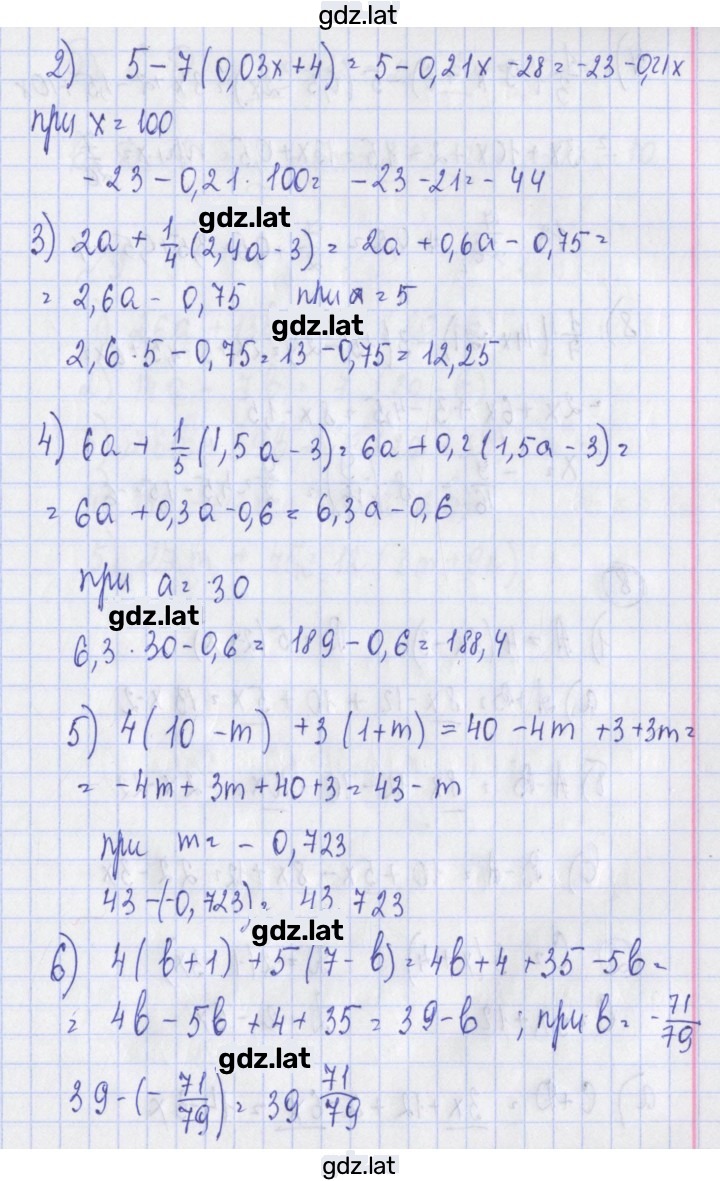 gdz.lat
2) 5 - 7(0,03x + 4) = 5 - 0,21x - 28 = -23 - 0,21x
при x = 100
-23 - 0,21 · 100 = -23 - 21 = -44
gdz.lat
3) 2a + 1/4 (2,4a - 3) = 2a + 0,6a - 0,75 =
= 2,6a - 0,75 при a = 5
gdz.lat
2,6 · 5 - 0,75 = 13 - 0,75 = 12,25
4) 6a + 1/5 (1,5a - 3) = 6a + 0,2(1,5a - 3) =
= 6a + 0,3a - 0,6 = 6,3a - 0,6
при a = 30
gdz.lat
6,3 · 30 - 0,6 = 189 - 0,6 = 188,4
5) 4(10 - m) + 3(1 + m) = 40 - 4m + 3 + 3m =
= -4m + 3m + 40 + 3 = 43 - m
при m = -0,723
43 - (-0,723) = 43 723
gdz.lat
6) 4(b + 1) + 5(7 - b) = 4b + 4 + 35 - 5b =
= 4b - 5b + 4 + 35 = 39 - b ; при b = -71/79
gdz.lat
39 - (-71/79) = 39 71/79
gdz.lat